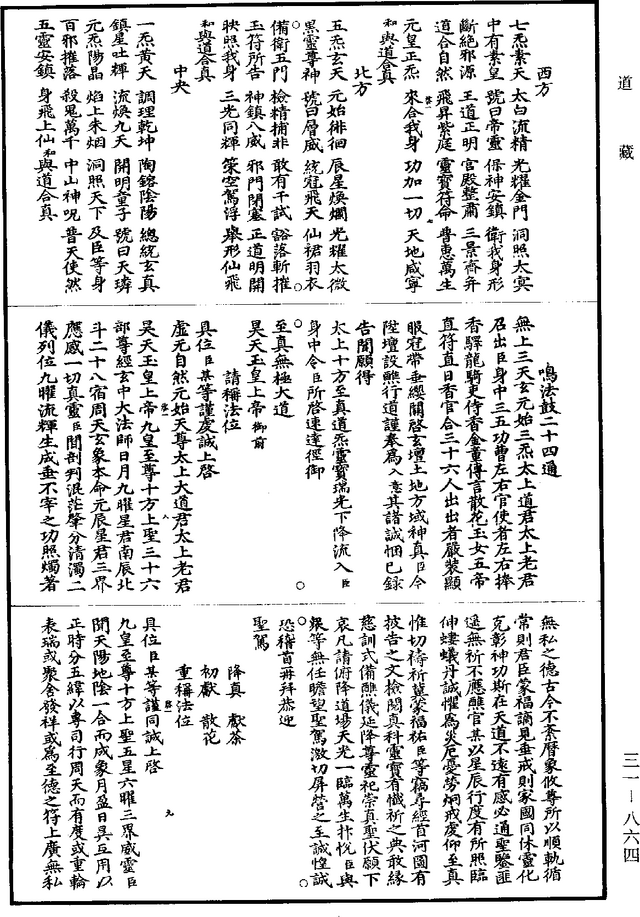 道藏
西方
七炁素天　太白流精　光耀金門　洞照太冥
中有素皇　號曰帝靈　保神安鎮　衛我身形
斷絕邪源　王道正明　宮殿整肅　三景齊幷
道合自然　飛昇紫庭　靈寶符命　普惠萬生
元皇正炁　來合我身　功加一切　天地咸寧
和與道合真
北方
五炁玄天　元始徘徊　辰星煥爛　光耀太微
黑靈尊神　號曰層威　統冠飛天　仙裙羽衣
備衛五門　檢精捕非　敢有千試　豁落斬摧
玉符所告　神鎮八威　邪門閉塞　正道明開
映照我身　三光同輝　策空駕浮　舉形仙飛
和與道合真
中央
一炁黃天　調理乾坤　陶鎔陰陽　總統玄真
鎮星吐輝　流煥九天　開明童子　號曰天璘
元炁陽晶　焰上朱烟　洞照天下　及臣等身
百邪摧落　殺鬼萬千　中山神呪　普天使然
五靈安鎮　身飛上仙　和與道合真
鳴法鼓二十四通
無上三天玄元始三炁太上道君太上老君
召出臣身中三五功曹左右官使者左右捧
香驛龍騎吏侍香金童傳言散花玉女五帝
直符直日香官合三十六人出出者嚴裝顯
服冠帶垂纓關啓玄壇土地方域神真臣今
陞壇設醮行道謹奉爲入意其諸誠悃已錄
告聞願得
太上十方至真道炁靈寶瑞光下降流入臣
身中令臣所啓速達徑御
至真無極大道
昊天玉皇上帝御前
請稱法位
具位臣某等謹虔誠上啓
虛无自然元始天尊太上大道君太上老君
昊天玉皇上帝九皇至尊十方上聖三十六
部尊經玄中大法師日月九曜星君南辰北
斗二十八宿周天玄象本命元辰星君三界
應感一切真靈臣聞剖判混茫肇分清濁二
儀列位九曜流輝生成垂不宰之功照燭著
無私之德古今不紊曆象攸尊所以順軌循
常則君臣蒙福謫見垂戒則家國同休靈化
克彰神功斯在天道不遠有感必通聖鑒匪
遥無祈不應醮官某以星辰行度有所照臨
伸螻蟻丹誠懼爲災厄憂勞炯戒虔仰至真
惟切禱祈冀蒙福祐臣等竊尋經首河圖有
披告之文檢閱真科靈寶有懺祈之典敢緣
慈訓式備醮儀延降尊靈祀崇真聖伏願下
哀凡請俯降道場天光一臨萬生抃悅臣與
某等無任瞻望聖駕激切屏營之至誠惶誠
恐稽首再拜恭迎
聖駕
降真　獻茶
初獻　散花
重稱法位
具位臣某等謹同誠上啓
九皇至尊十方上聖五星六曜三界威靈臣
聞天陽地陰一合而成象月盈日昃互用以
正時分五緯以專司行周天而有度或重輪
表瑞或聚舍發祥或爲至德之符上廣無私
三一－八六四